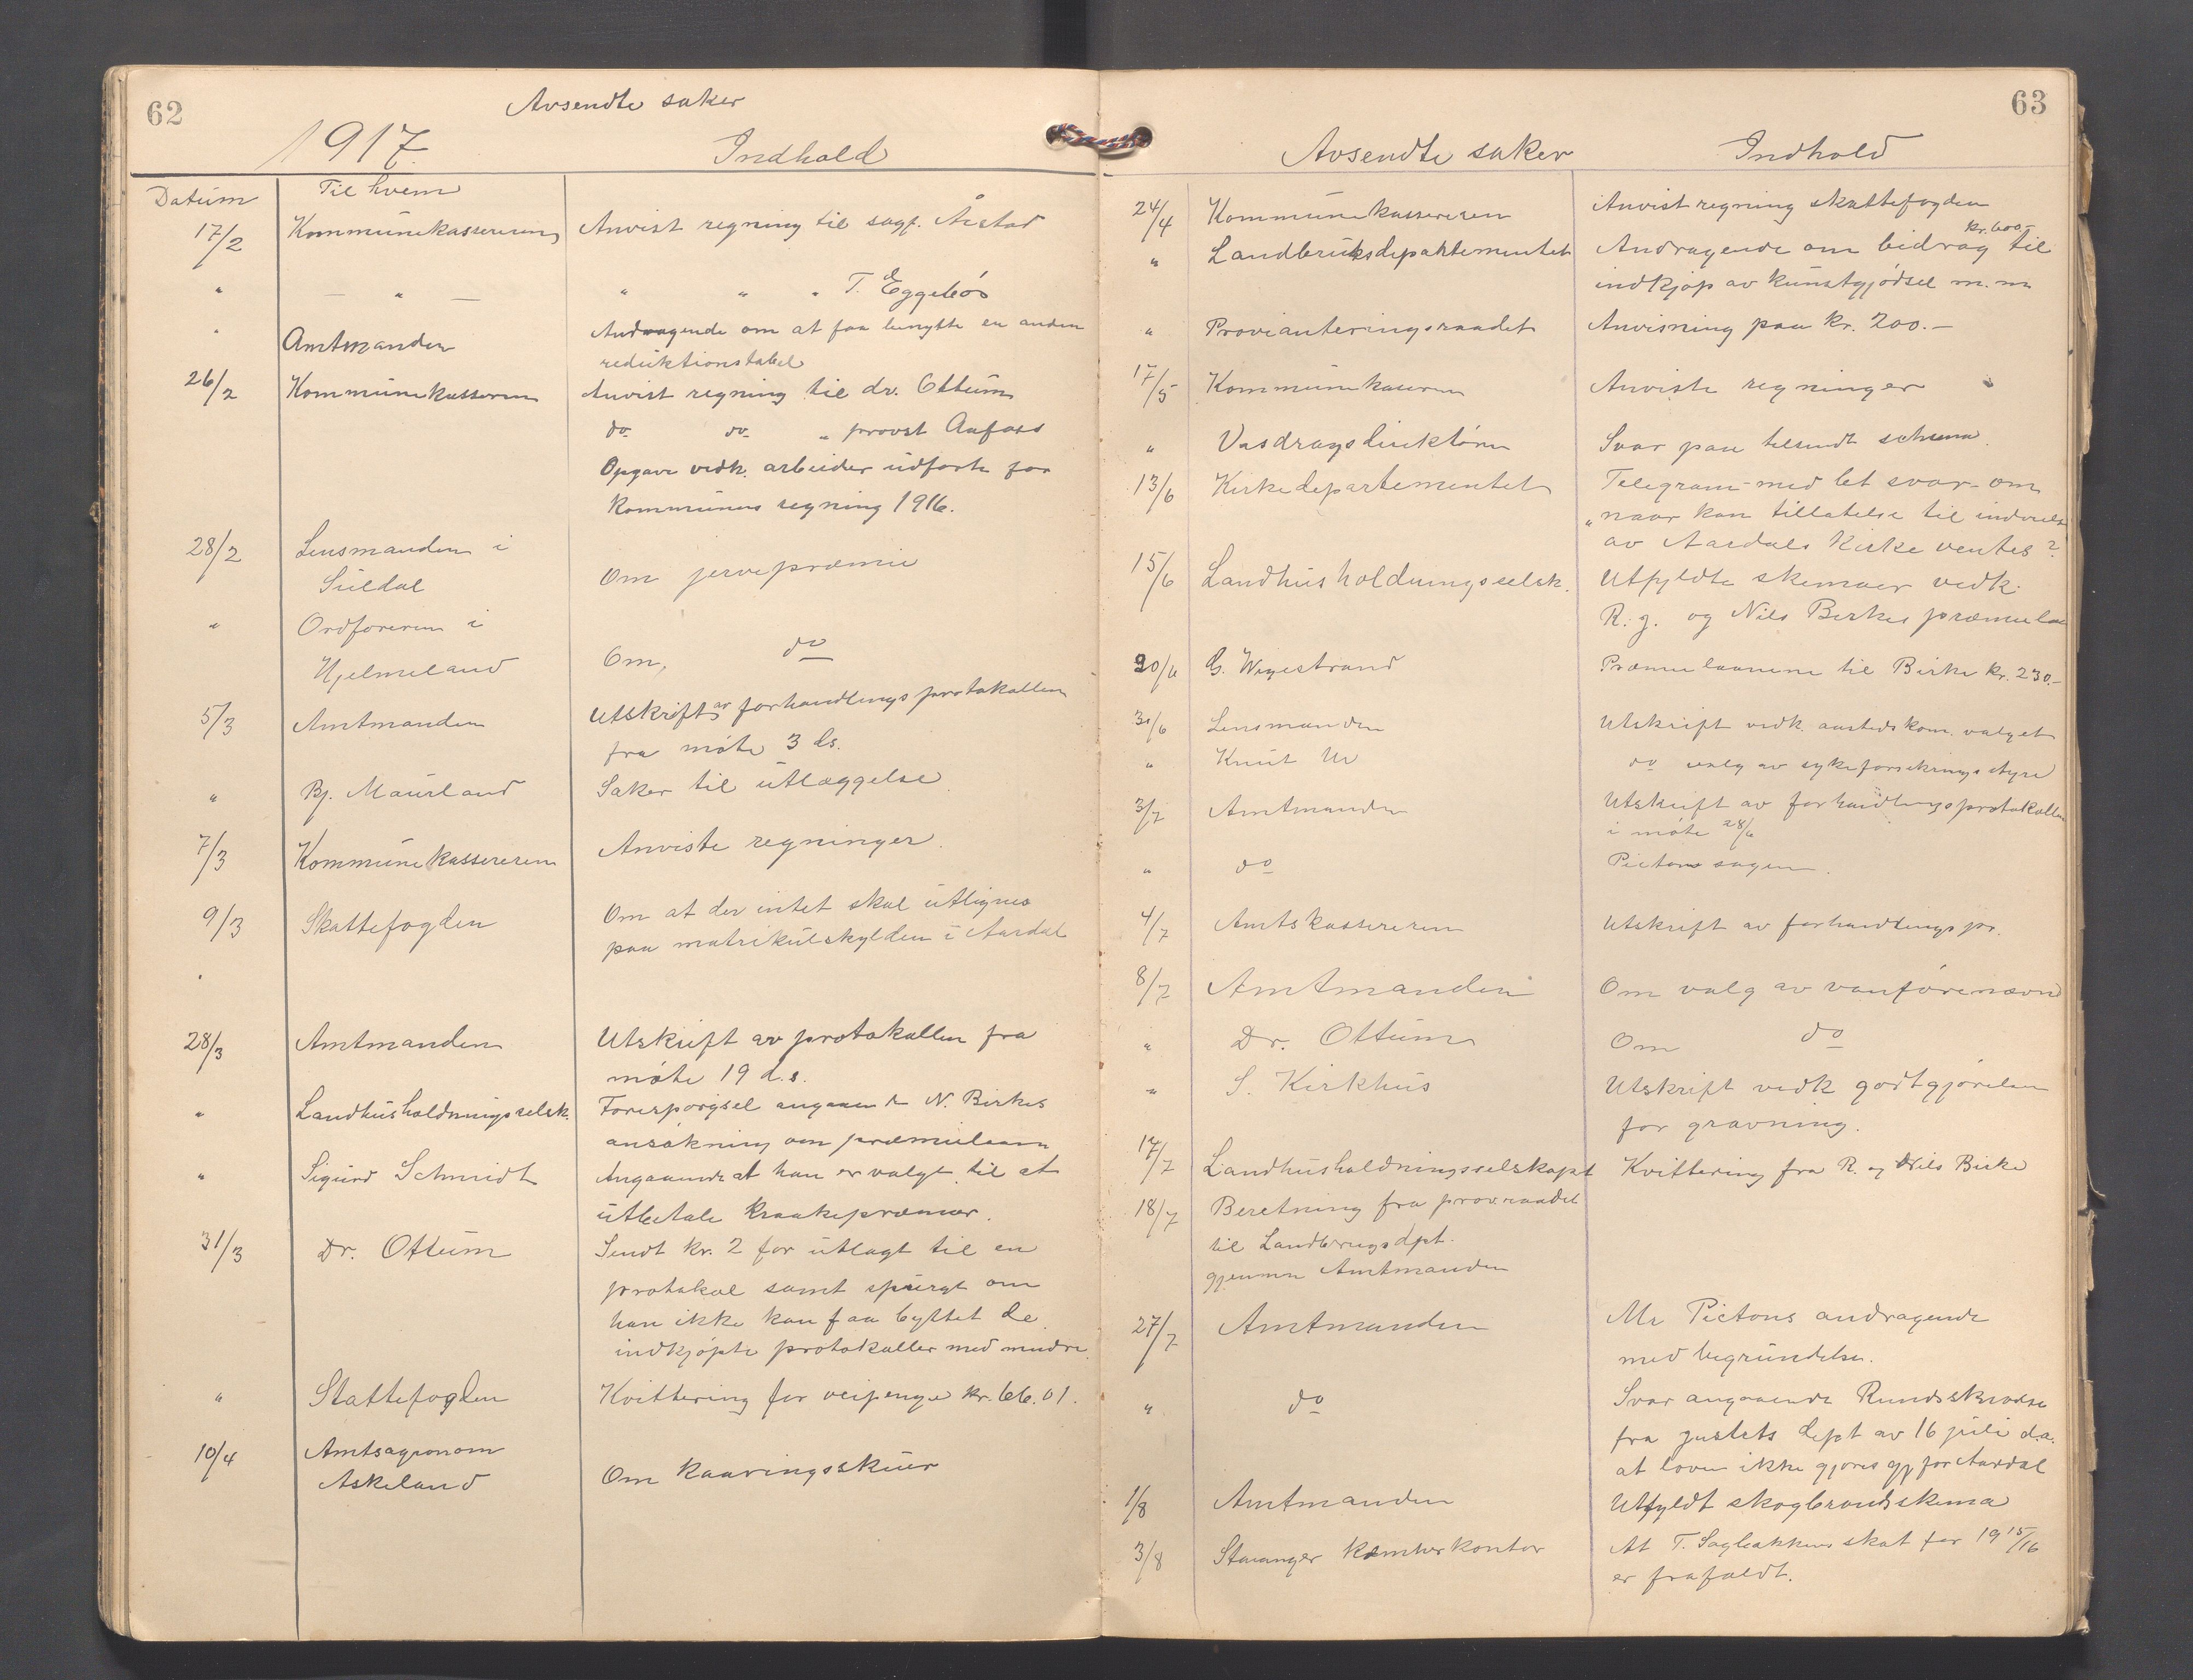 62
Avsendte saker
1917.
Indhold
Datum
Til hvem
17/2 Kommunekassereren Anvist regning til sagf. Årstad
" — " — " " " T. Eggebös
" Amtmanden Andragende om at faa benytte en anden
reduktionstabel
26/2 Kommunekasseren Anvist regning til dr. Ottum
do do " provst Aafoss
Opgave vedk. arbeider udførte for
kommunens regning 1916.
28/2 Lensmanden i
Suldal
Om jervepræmie
" Ordføreren i
Hjelmeland
Om, do
5/3 Amtmanden Utskrift av forhandlingsprotokollen
fra möte 3 ds.
" Bj. Maurland Saker til utlæggelse.
7/3 Kommunekassereren Anviste regninger.
9/3 Skattefogden Om at der intet skal utlignes
paa matrikulskylden i Aardal
28/3 Amtmanden Utskrift av protokollen fra
möte 19 d.s.
" Landhusholdningsselsk. Forespörgsel angaaende N. Birkes
ansökning om præmielaan
" Sigurd Schmidt Angaaende at han er valgt til at
utbetale kraakepræmier.
31/3 Dr. Ottum Sendt kr. 2 for utlagt til en
protokol samt spurgt om
han ikke kan faa byttet de
indkjöpte protokoller med mindre.
" Skattefogden Kvittering for veipenge kr. 66.01.
10/4 Amtsagronom
Askeland
Om kaaringsskuer
63
Avsendte saker Indhold
24/4 Kommunekassereren Anvist regning skattefogden
kr. 600.-
" Landbruksdepartementet Andragende om bidrag til
indkjöp av kunstgjödsel m.m
" Provianteringsraadet Anvisning paa kr. 200.-
17/5 Kommunekasseren Anviste regninger
" Vasdragsdirektören Svar paa tilsendt schema.
13/6 Kirkedepartementet Telegram - med bet svar - om
"naar kan tillatelse til indvielse
av Aardals Kirke ventes?
15/6 Landhusholdningsselsk. Utfyldte skemaer vedk.
R. g. og Nils Birkes præmielaan
20/6 G. Wigestrand Præmielaanene til Birke kr. 230.-
30/6 Lensmanden Utskrift vedk. aastedskom. valget
" Knut Ur do valg av sykeforsikringsstyre
3/7 Amtmanden Utskrift av forhandlingsprotokollen
i möte 28/6
" do Pictons sagen.
4/7 Amtskassereren Utskrift av forhandlingspr.
8/7 Amtmanden Om valg av vanförenævnd
" Dr. Ottum Om do
" S. Kirkhus Utskrift vedk godtgjörelsen
for gravning.
17/7 Landhusholdningsselskapt Kvittering fra R. og Nils Birke
18/7 Beretning fra provraadet
til Landbrugsdpt.
gjennem Amtmanden
27/7 Amtmanden Mr Pictons andragende
med begrundelse.
" do Svar angaaende Rundskrivelse
fra justets dept av 16 juli d.a.
at loven ikke gjöres gj for Aardal
1/8 Amtmanden Utfyldt skogbrandskema
3/8 Stavanger kemnerkontor At T. Sagbakkens skat for 1915/16
er frafaldt.